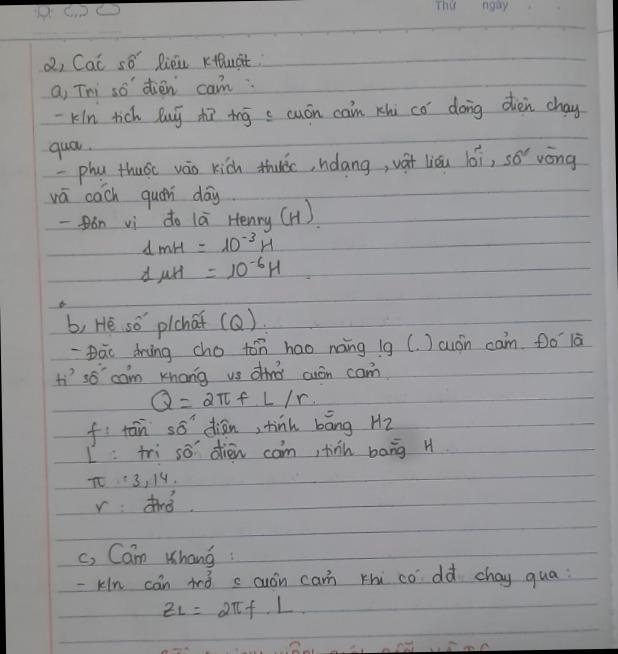 Thứ ngày
2, Các số liệu kthuật:
a, Trị số điện cảm:
- k/n tích luỹ từ trg c cuộn cảm khi có dòng điện chạy
qua.
- phụ thuộc vào kích thước, hdạng, vật liệu lõi, số vòng
và cách quấn dây.
- Đơn vị đo là Henry (H)
1 mH = 10⁻³ H
1 μH = 10⁻⁶ H
b, Hệ số p/chất (Q).
- Đặc trưng cho tổn hao năng lg (.) cuộn cảm. Đó là
tỉ số cảm kháng vs đtrở cuộn cảm
Q = 2πf.L/r.
f: tần số điện, tính bằng Hz
L: trị số điện cảm, tính bằng H.
π: 3,14.
r: đtrở.
c, Cảm kháng:
- k/n cản trở c cuộn cảm khi có dđ chạy qua:
ZL = 2πf.L.